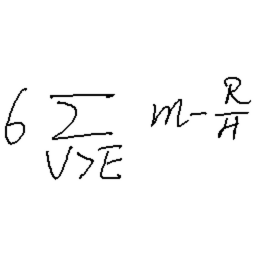 6 \sum_{V>E} m - \frac{R}{H}